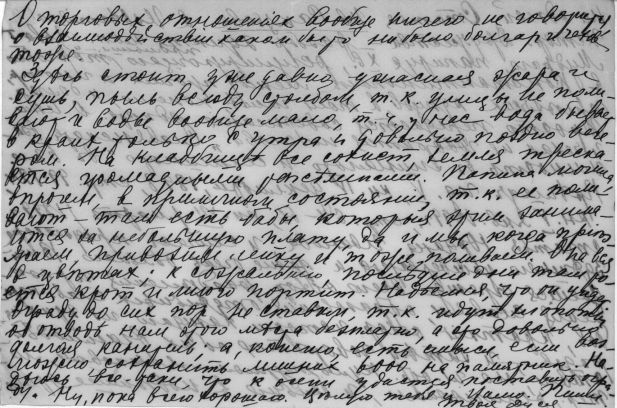 О торговых отношениях вообще ничего не говорят,
о взаимодействии каком бы то ни было болгар и
тоже.
Здесь стоит уже давно ужасная жара и
сушь, пыль всюду столбом, т.к. улицы не поли-
вают и воды вообще мало, т.ч. у нас вода бывает
в кране только с утра и довольно поздно вече-
ром. На кладбище все сохнет, земля треска-
ется громадными Папина могила
впрочем в приличном состоянии, т.к. ее поли-
вают – там есть бабы которые этим занима-
ются за небольшую плату, да и мы, когда приез-
жаем, привозим лейку и тоже поливаем. Она вся
в цветах; к сожалению последние дни там
крот и много портит. Надеемся, что он уйдет.
Ограду до сих пор не ставим, т.к. идут хлопоты
об отводе нам этого места бесплатно, а это довольно
долгая канитель, а, конечно, есть смысл, если воз-
можно сохранить лишних 6000 на памятник. На-
деюсь все-таки, что к осени удастся поставить
Ну, пока всего хорошего. Целую тебя и Пиши.
Твоя